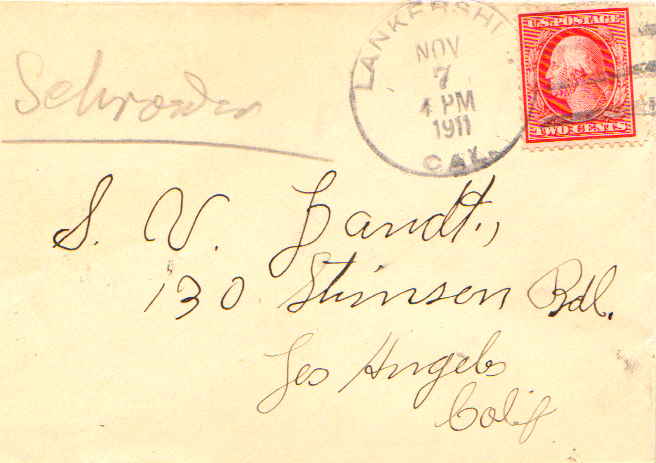 LANKERSHI
NOV
7
4 PM
1911
CAL.
U.S. POSTAGE
TWO CENTS
Schroeder
S. V. Landt,
130 Stimson Bdl.
Los Angeles
Calif